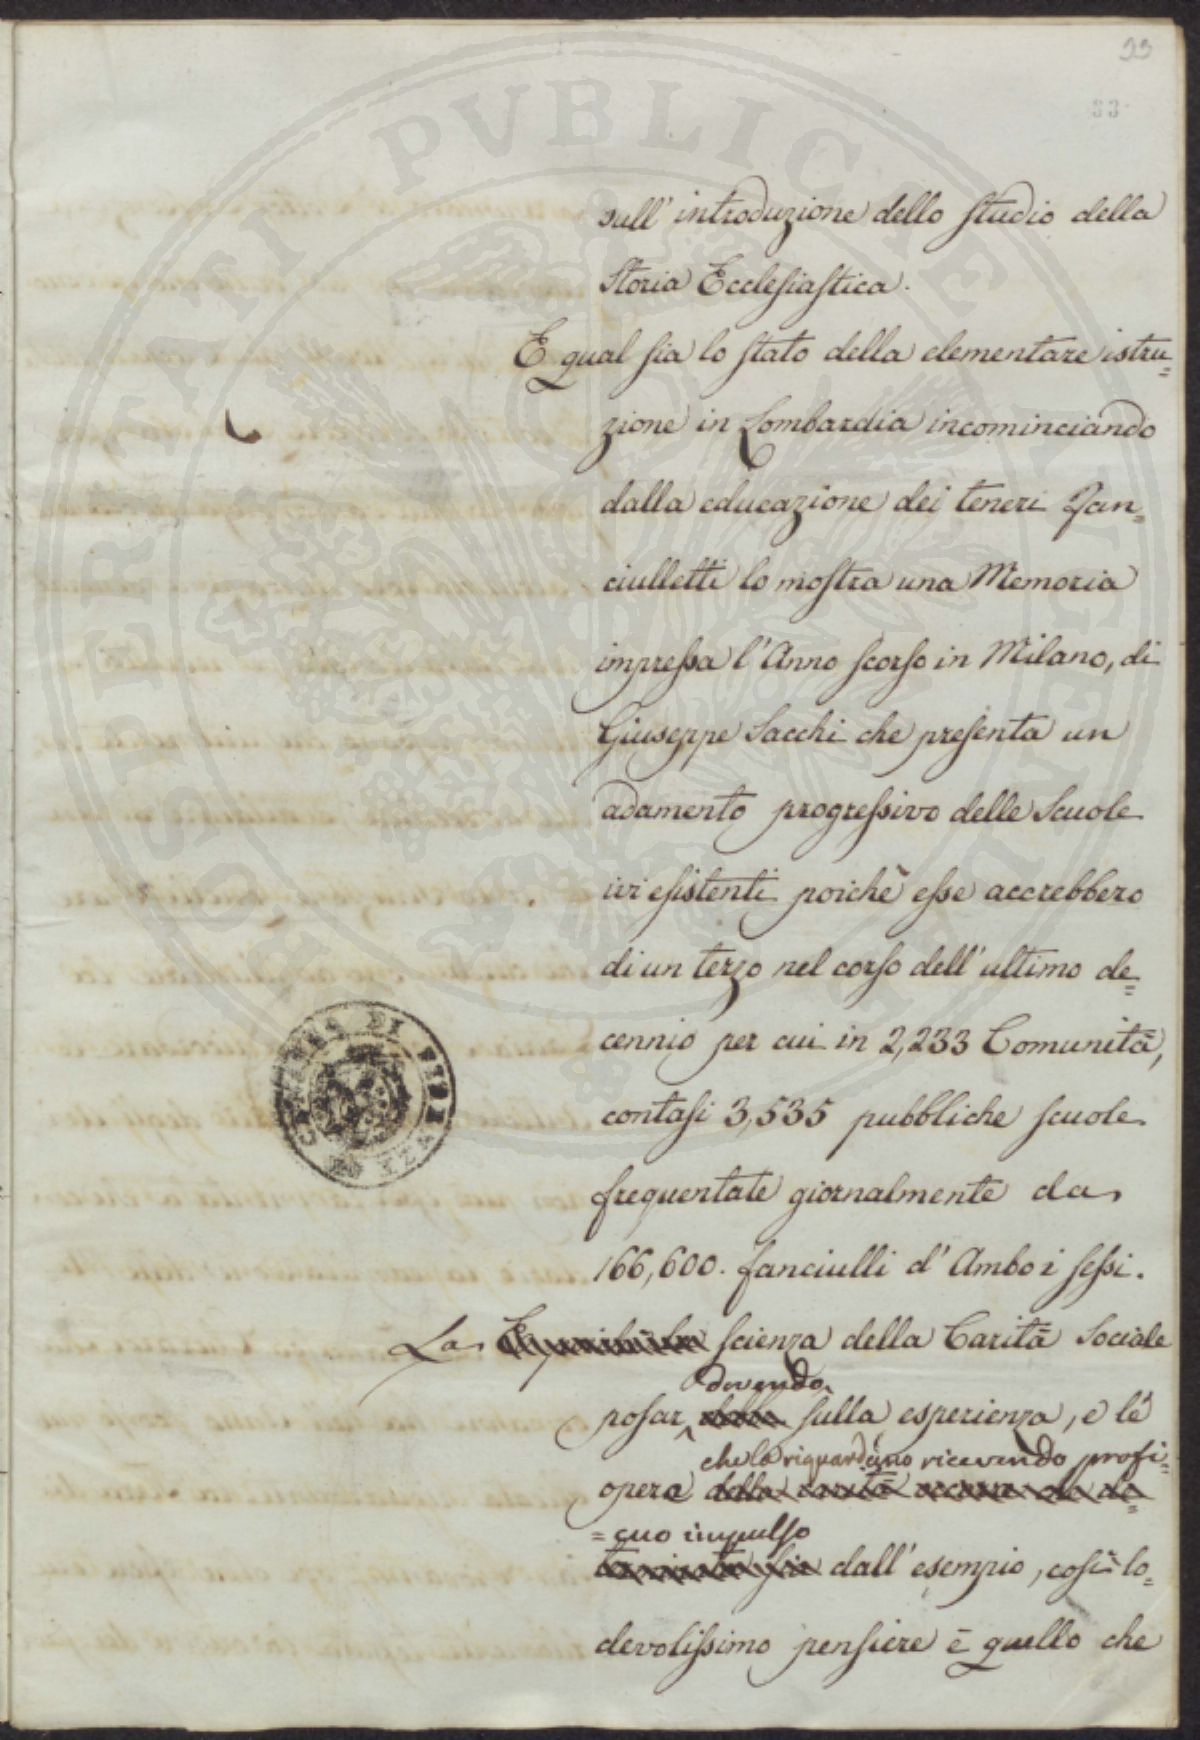 33
33
sull' introduzione dello studio della
Storia Ecclesiastica.
E qual sia lo stato della elementare istru=
zione in Lombardia incominciando
dalla educazione dei teneri Fan=
ciulletti lo mostra una Memoria
impressa l'Anno scorso in Milano, di
Giuseppe Sacchi che presenta un
adamento progressivo delle Scuole
ivi esistenti poichè esse accrebbero
di un terzo nel corso dell' ultimo de=
cennio per cui in 2,233 Comunità,
contasi 3,535 pubbliche scuole
frequentate giornalmente da
166,600. fanciulli d' Ambo i sessi.
La scienza della Carità Sociale
dovendo
posar sulla esperienza, e le
che la riguardano ricevendo profi=
opere
=cuo impulso
dall' esempio, così lo=
devolissimo pensiere è quello che
PROSPERITATI PVBLICAE AVGENDAE